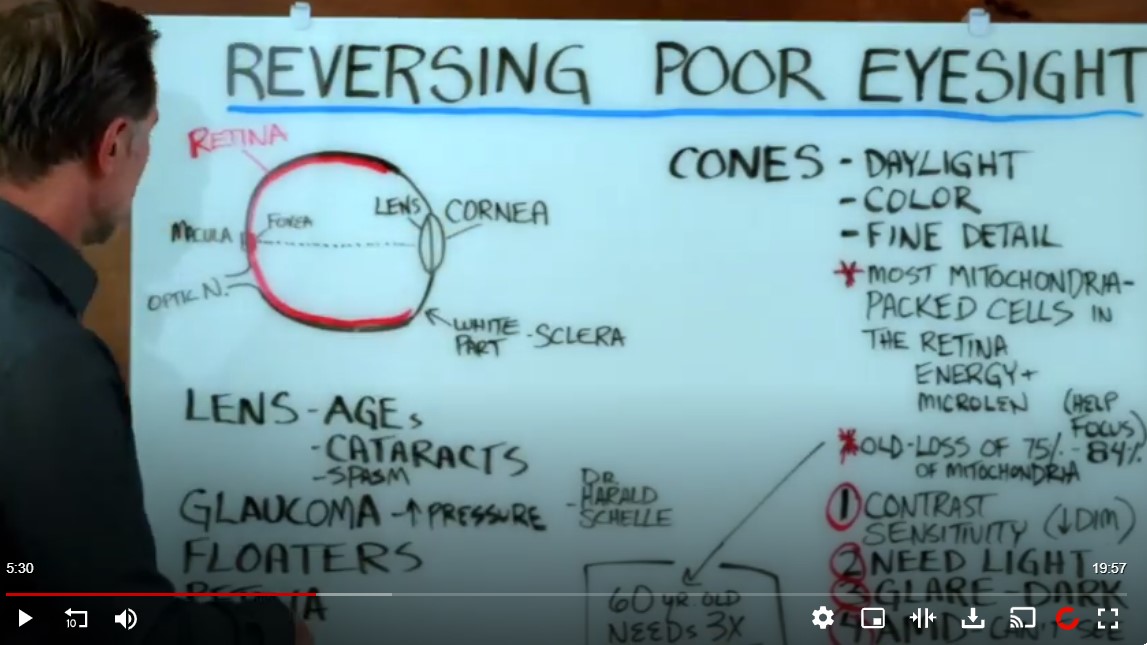 REVERSING POOR EYESIGHT
RETINA
MACULA
FOVEA
LENS
CORNEA
OPTIC N.
WHITE PART - SCLERA
LENS - AGES
- CATARACTS
- SPASM
GLAUCOMA - ↑ PRESSURE
- DR. HARALD SCHELLE
FLOATERS
CONES - DAYLIGHT
- COLOR
- FINE DETAIL
* MOST MITOCHONDRIA-
PACKED CELLS IN
THE RETINA
ENERGY +
MICROLEN (HELP FOCUS)
* OLD - LOSS OF 75% - 84%
OF MITOCHONDRIA
1 CONTRAST
SENSITIVITY (↓ DIM)
2 NEED LIGHT
3 GLARE - DARK
4 AMD - CAN'T SEE
60 YR. OLD
NEEDS 3X
5:30
19:57
10